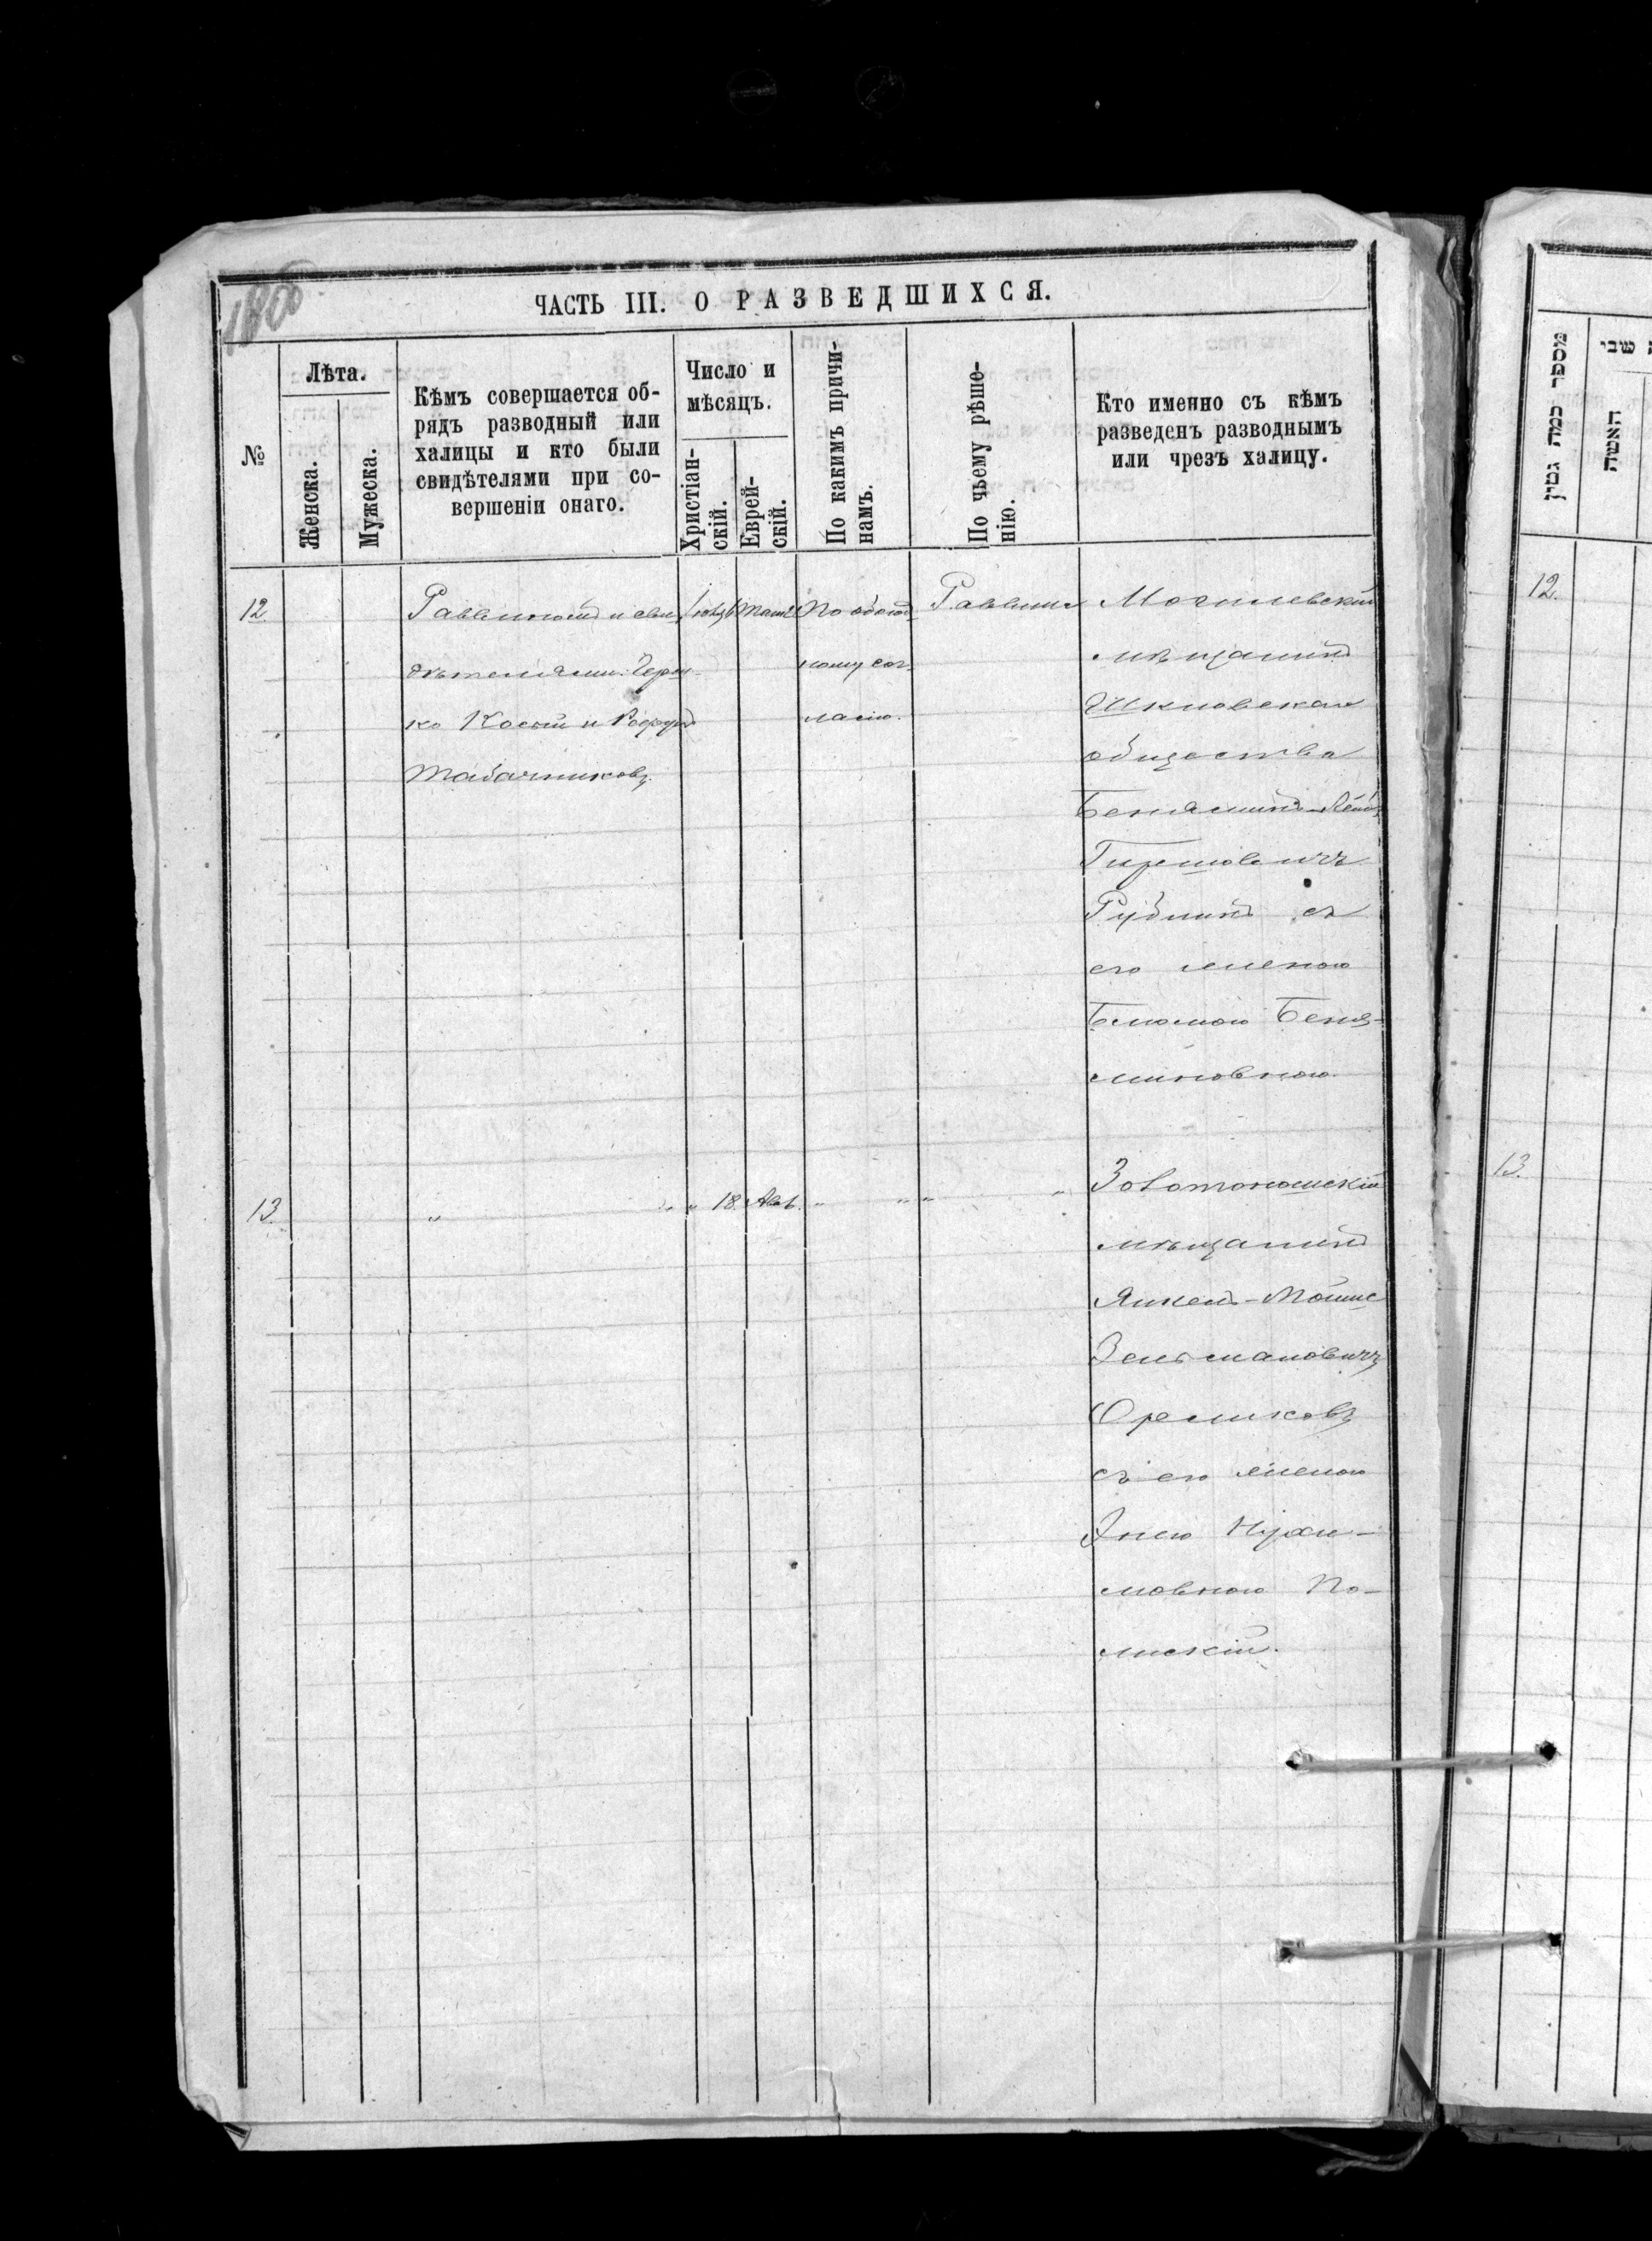 ЧАСТЬ III. О РАЗВЕДШИХСЯ.
№
Лѣта.
Женска.
Мужеска.
Кѣмъ совершается об-
рядъ разводный или
халицы и кто были
свидѣтелями при со-
вершеніи онаго.
Число и
мѣсяцъ.
Христіан-
скій.
Еврей-
скій.
По какимъ причи-
намъ.
По чьему рѣше-
нію.
Кто именно съ кѣмъ
разведенъ разводнымъ
или чрезъ халицу.
12
Раввиномъ и сви-
дѣтелями:
ко Косый и
Табачниковъ.
По обоюд-
ному сог-
ласію.
Раввина
Могилевскій
мѣщанинъ
Шкловскаго
общества
Беньяминъ-
Гиршовичъ
Рубинъ съ
его женою
Блюмою Бенья-
миновною.
13.
" " " 18 Авъ. " " " "
Золотоношскій
мѣщанинъ
Янкель-Мойше
Зельмановичъ
Орликовъ
съ его женою
Энею Нухи-
мовною По-
лискій.
מספר כמה גטין
האשה
שני
12.
13.